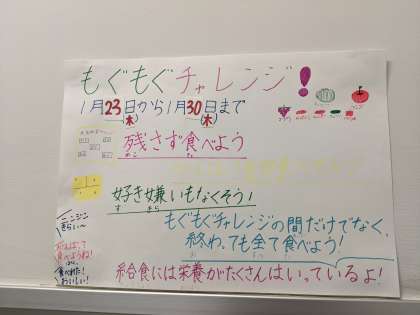 もぐもぐチャレンジ!
1月23日から1月30日まで
(木) (木)
残さず食べよう
のこ た
好き嫌いもなくそう!
す きら
もぐもぐチャレンジの間だけでなく、
終わっても全て食べよう!
給食には栄養がたくさんはいっているよ!
ニンジン
きらい〜
がんばって
食べようね!
食べれた!
おいしい!